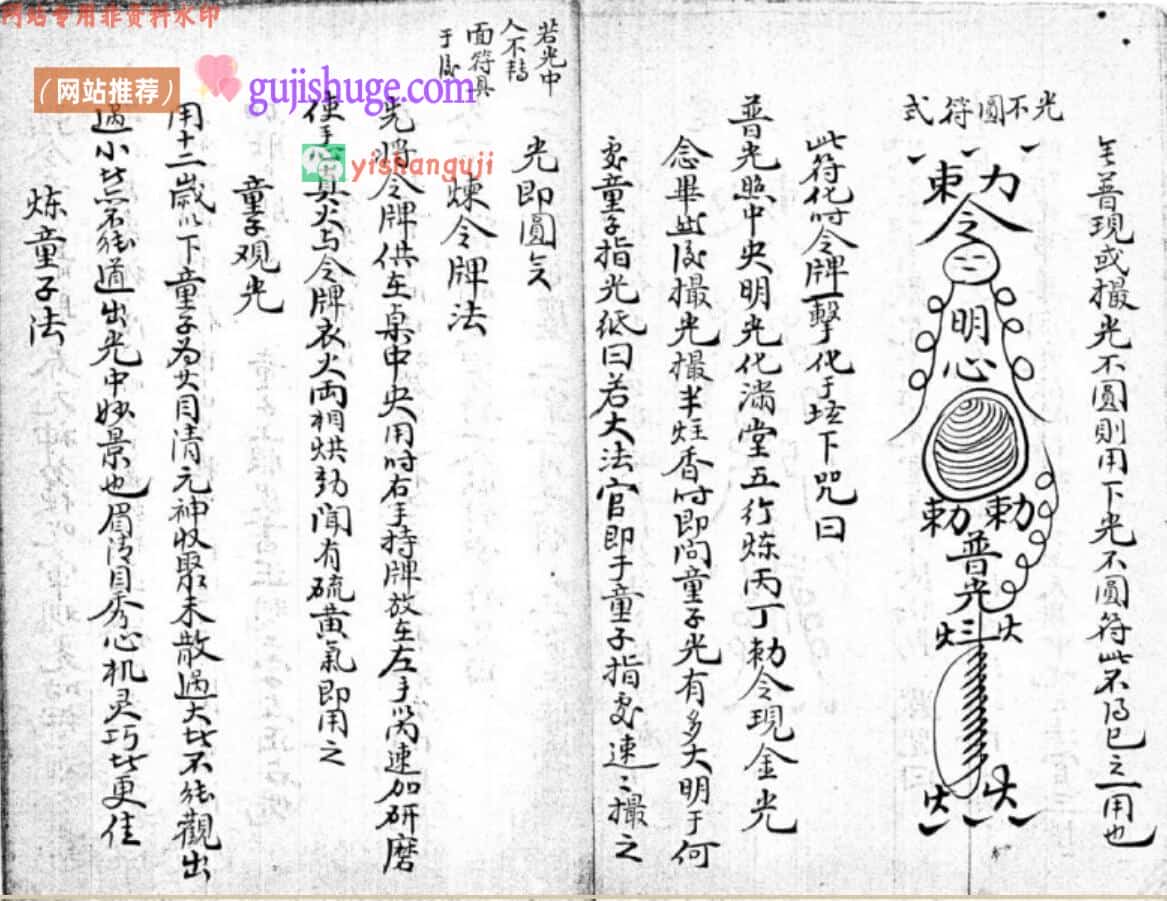 网站专用非资料水印
（网站推荐）
gujishuge.com
yishanguji
普現或撮光不圓則用下光不圓符此不得已之用也
光不圓符式
敕令
明心
勅勅
普光
此符化时令牌一擊化于坛下咒曰
普光照中央明光化满堂五行炼丙丁勅令現金光
念畢此後撮光撮半炷香时即问童子光有多大明于何
处童子指光纸曰若大法官即于童子指处速々撮之
光即圓矣
若光中
人不转
面符具
于后
煉令牌法
先将令牌供在桌中央用时右手持牌放在左手以内速加研磨
使手真火与令牌衣火両相烘動聞有硫黄氣即用之
童子观光
用十二歲以下童子为其目清元神收聚未散過大比不能觀出
過小比不能道出光中妙景也眉清目秀心机灵巧比更佳
炼童子法